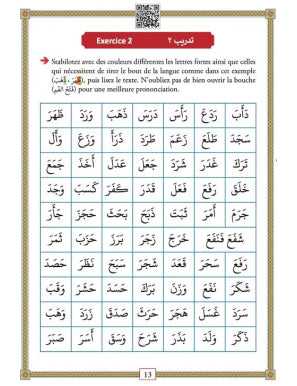 Exercice 2 تدريب ٢
Stabilotez avec des couleurs différentes les lettres fortes ainsi celles
qui nécessitent de tirer le bout de la langue comme dans cet exemple
(ظَهَرَ ، ذَهَبَ), puis lisez le texte. N'oubliez pas de bien ouvrir la bouche
(فَتْحُ الفَمِ) pour une meilleure prononciation.
دَأَبَ رَدَعَ رَأَسَ دَرَسَ ذَهَبَ وَرَدَ ظَهَرَ
سَجَدَ طَلَعَ زَعَمَ طَرَدَ ذَرَأَ وَزَعَ وَأَلَ
تَرَكَ غَدَرَ شَرَدَ جَعَلَ عَدَلَ أَخَذَ جَمَعَ
خَلَقَ رَفَعَ فَعَلَ قَدَرَ كَفَرَ كَسَبَ وَجَدَ
جَرَمَ أَمَرَ ثَبَتَ ذَبَحَ بَحَثَ حَجَزَ جَأَرَ
شَفَعَ فَنَفَعَ خَرَجَ زَجَرَ بَرَزَ حَزَبَ ثَمَرَ
رَفَعَ سَحَرَ قَعَدَ شَجَرَ سَبَحَ نَظَرَ حَصَدَ
شَكَرَ نَفَعَ وَزَنَ بَرَكَ حَسَدَ حَشَرَ وَقَبَ
سَرَدَ غَسَلَ هَجَرَ حَرَثَ صَدَقَ زَرَدَ وَهَبَ
ذَكَرَ وَلَدَ بَذَرَ شَرَحَ وَسَقَ أَسَرَ صَبَرَ
13